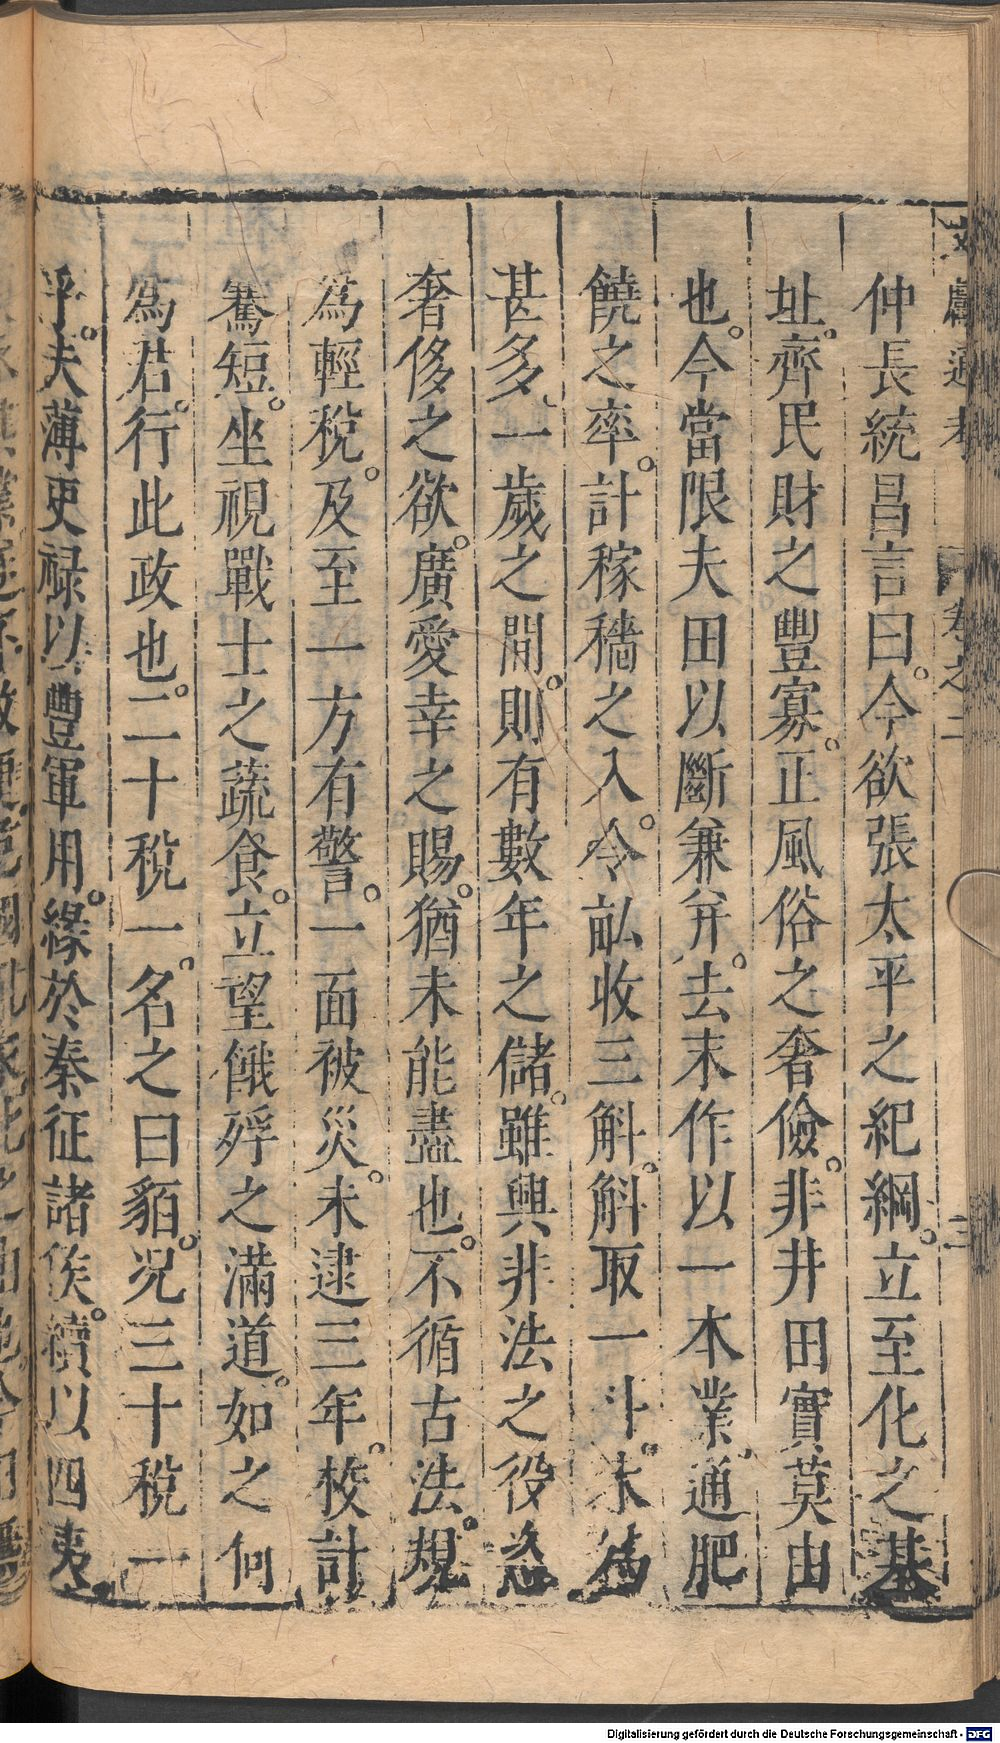 獻通考 卷之二 三
仲長統昌言曰。今欲張太平之紀綱。立至化之基
址。齊民財之豐寡。正風俗之奢儉。非井田實莫由
也。今當限夫田以斷兼幷。去末作以一本業。通肥
饒之率。計稼穡之入。令畝收三斛。斛取一斗。未為
甚多。一歲之閒。則有數年之儲。雖興非法之役恣
奢侈之欲。廣愛幸之賜。猶未能盡也。不循古法。規
為輕稅。及至一方有警。一面被災。未逮三年。校計
騫短。坐視戰士之蔬食。立望餓殍之滿道。如之何
為君。行此政也。二十稅一。名之曰貊。况三十稅一
乎。夫薄吏祿以豐軍用。緣於秦征諸侯。續以四夷
Digitalisierung gefördert durch die Deutsche Forschungsgemeinschaft - DFG